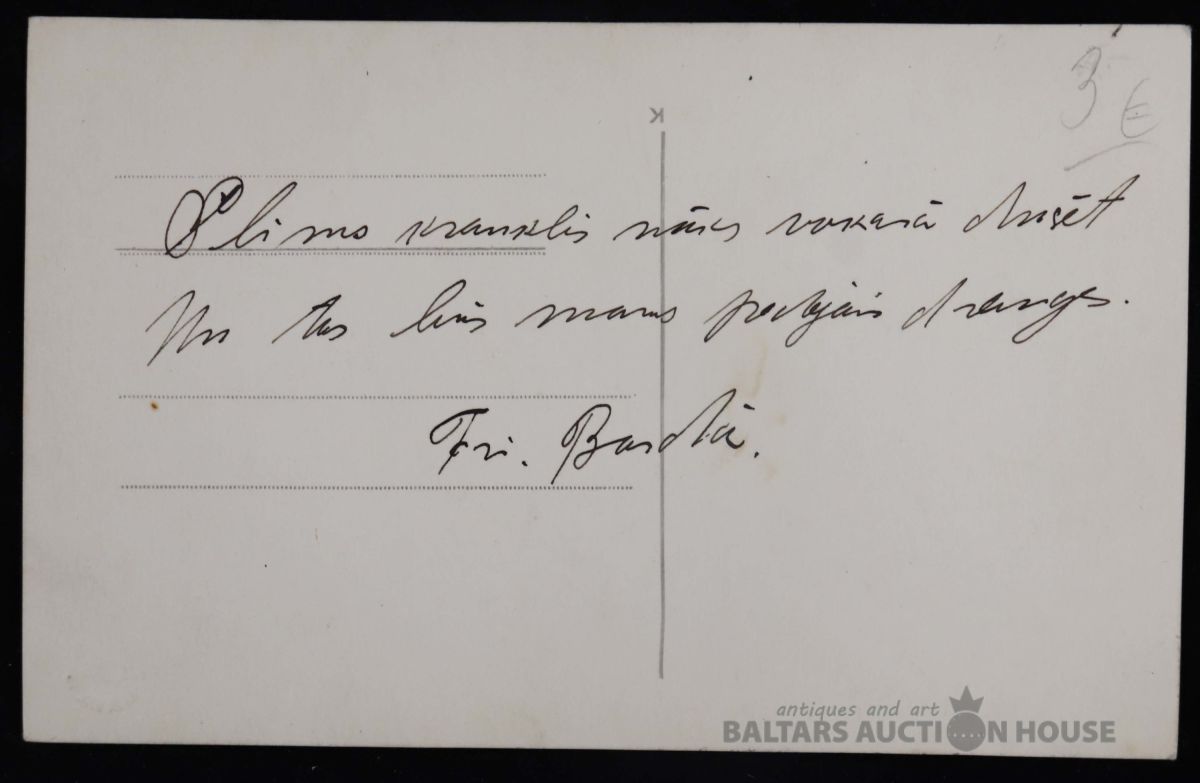 3 €
K
Slims krauklis nāks vakarā dusēt
Un tas būs mans pēdējais draugs.
Fri. Bārda.
antiques and art
BALTARS AUCTION HOUSE